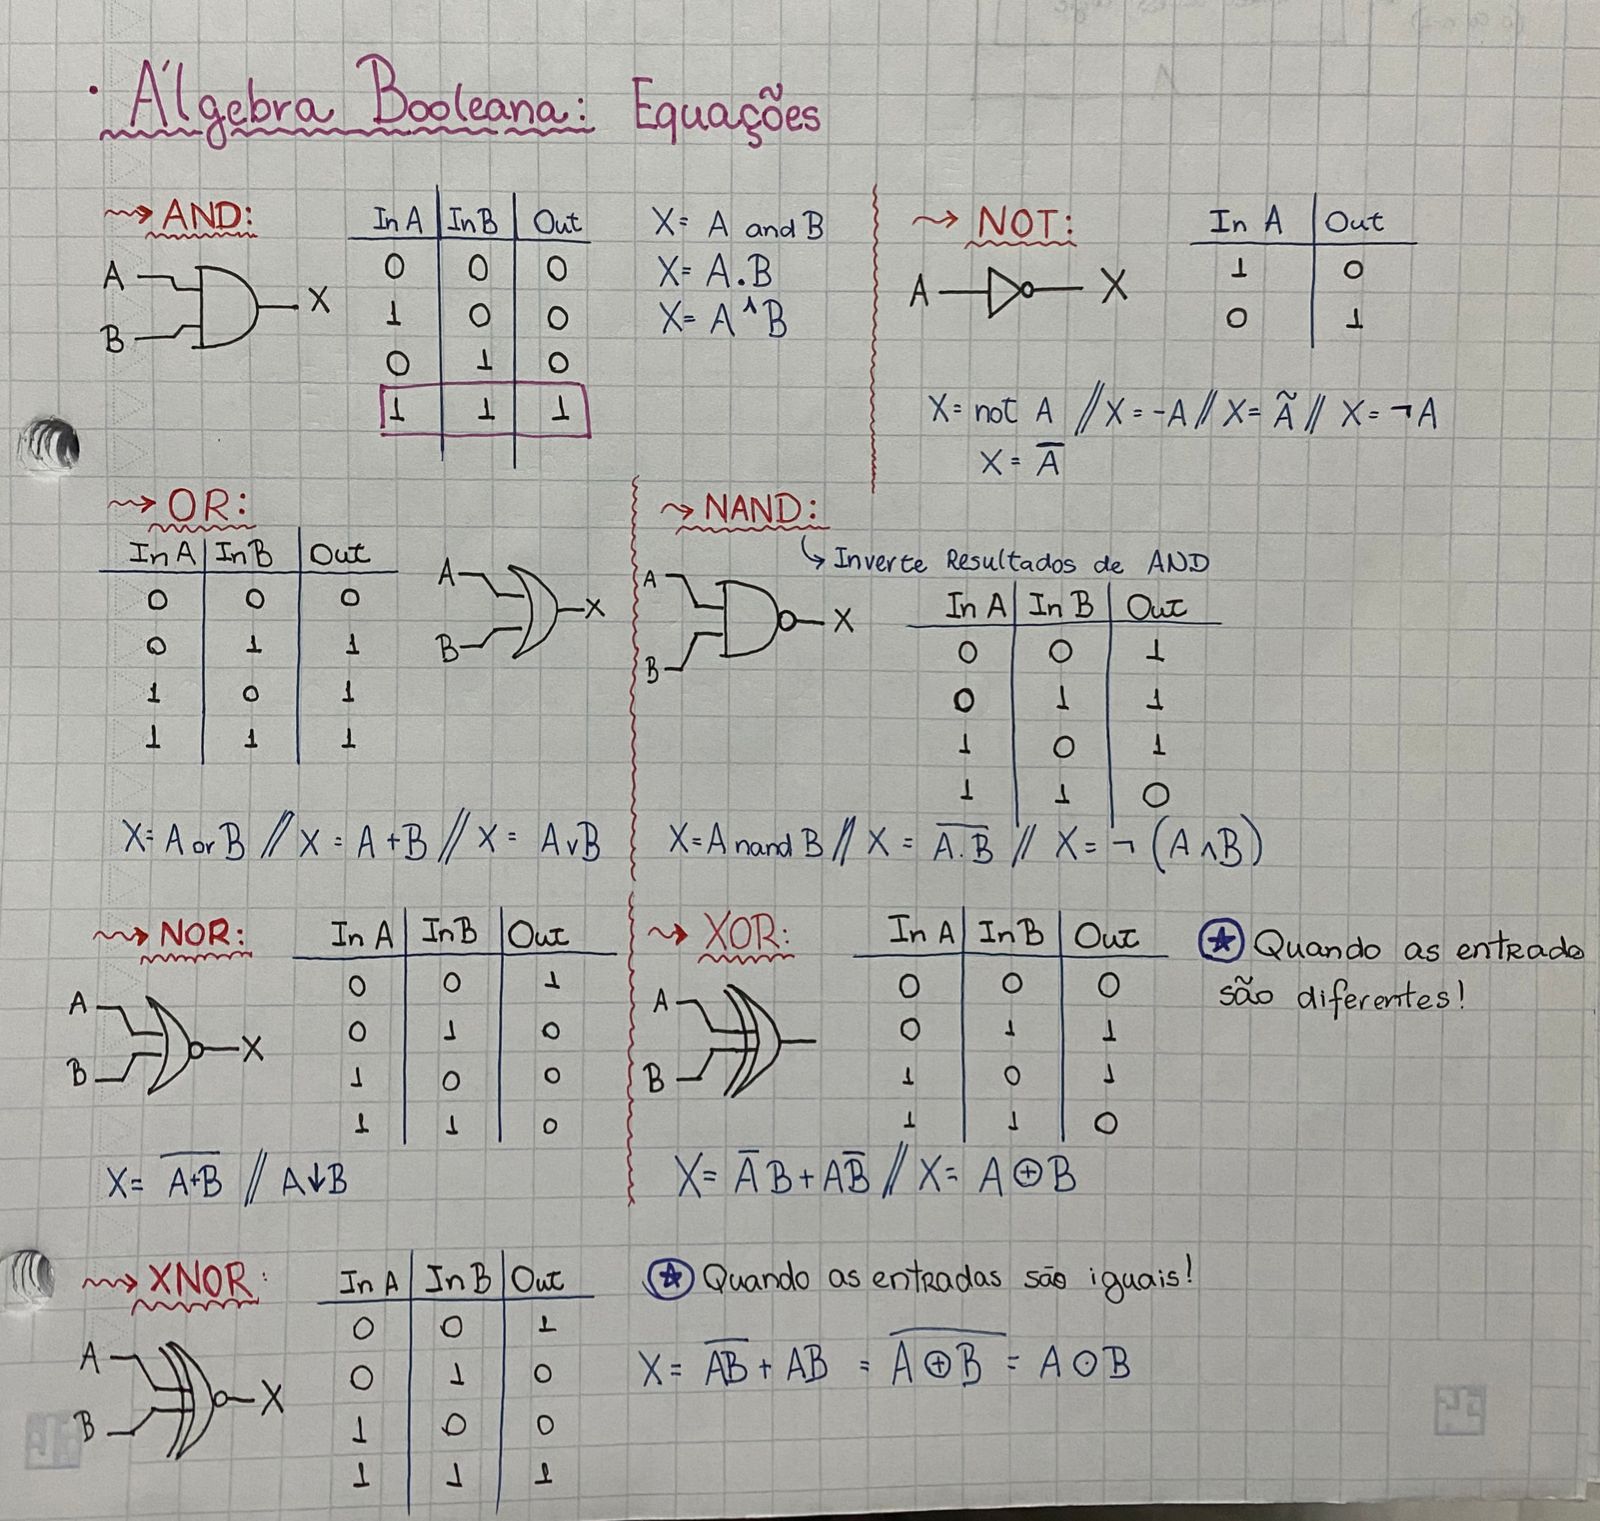 · Álgebra Booleana: Equações
⇝ AND:
A
B
X
In A | In B | Out
0 | 0 | 0
1 | 0 | 0
0 | 1 | 0
1 | 1 | 1
X= A and B
X= A.B
X= A^B
⇝ NOT:
A
X
In A | Out
1 | 0
0 | 1
X= not A // X = -A // X= Ã // X= ¬A
X = A̅
⇝ OR:
In A | In B | Out
0 | 0 | 0
0 | 1 | 1
1 | 0 | 1
1 | 1 | 1
A
B
X
X= A or B // X = A+B // X = A∨B
⇝ NAND:
↳ Inverte Resultados de AND
A
B
X
In A | In B | Out
0 | 0 | 1
0 | 1 | 1
1 | 0 | 1
1 | 1 | 0
X=A nand B // X = A̅.̅B̅ // X= ¬ (A∧B)
⇝ NOR:
A
B
X
In A | In B | Out
0 | 0 | 1
0 | 1 | 0
1 | 0 | 0
1 | 1 | 0
X= A̅+̅B̅ // A↓B
⇝ XOR:
A
B
In A | In B | Out
0 | 0 | 0
0 | 1 | 1
1 | 0 | 1
1 | 1 | 0
Quando as entrada
são diferentes!
X= A̅B + AB̅ // X= A⊕B
⇝ XNOR:
A
B
X
In A | In B | Out
0 | 0 | 1
0 | 1 | 0
1 | 0 | 0
1 | 1 | 1
Quando as entradas são iguais!
X= A̅B̅ + AB = A̅⊕̅B̅ = A⊙B